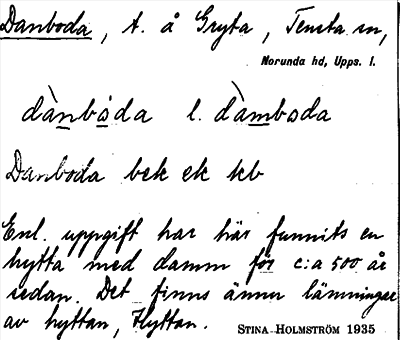 Danboda, t. å Gryta, Tensta sn,
Norunda hd, Upps. l.
dànbòda l. dàmboda
Danboda bek ek kb
Enl. uppgift har här funnits en
hytta med damm för c:a 500 år
sedan. Det finns ännu lämningar
av hyttan, Hyttan.
STINA HOLMSTRÖM 1935